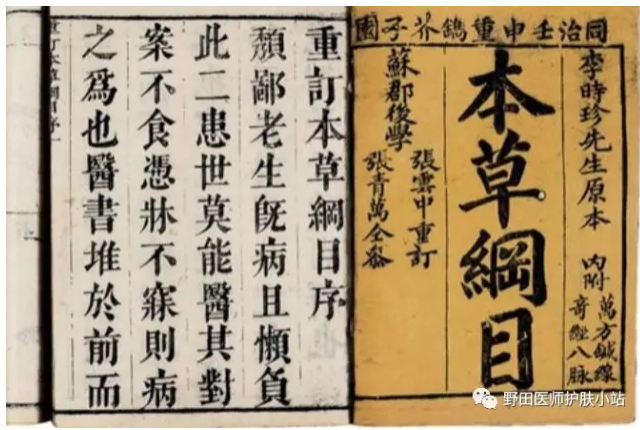 同治壬申重鐫芥子園
李時珍先生原本
內附
萬方鍼線
奇經八脉
本草綱目
蘇郡後學
張雲中重訂
張青萬仝叅
重訂本草綱目序
頹鄙老生旣病且懶負
此二患世莫能醫其對
案不食憑牀不寐則病
之爲也醫書堆於前而
重訂本草綱目序一
野田医师护肤小站